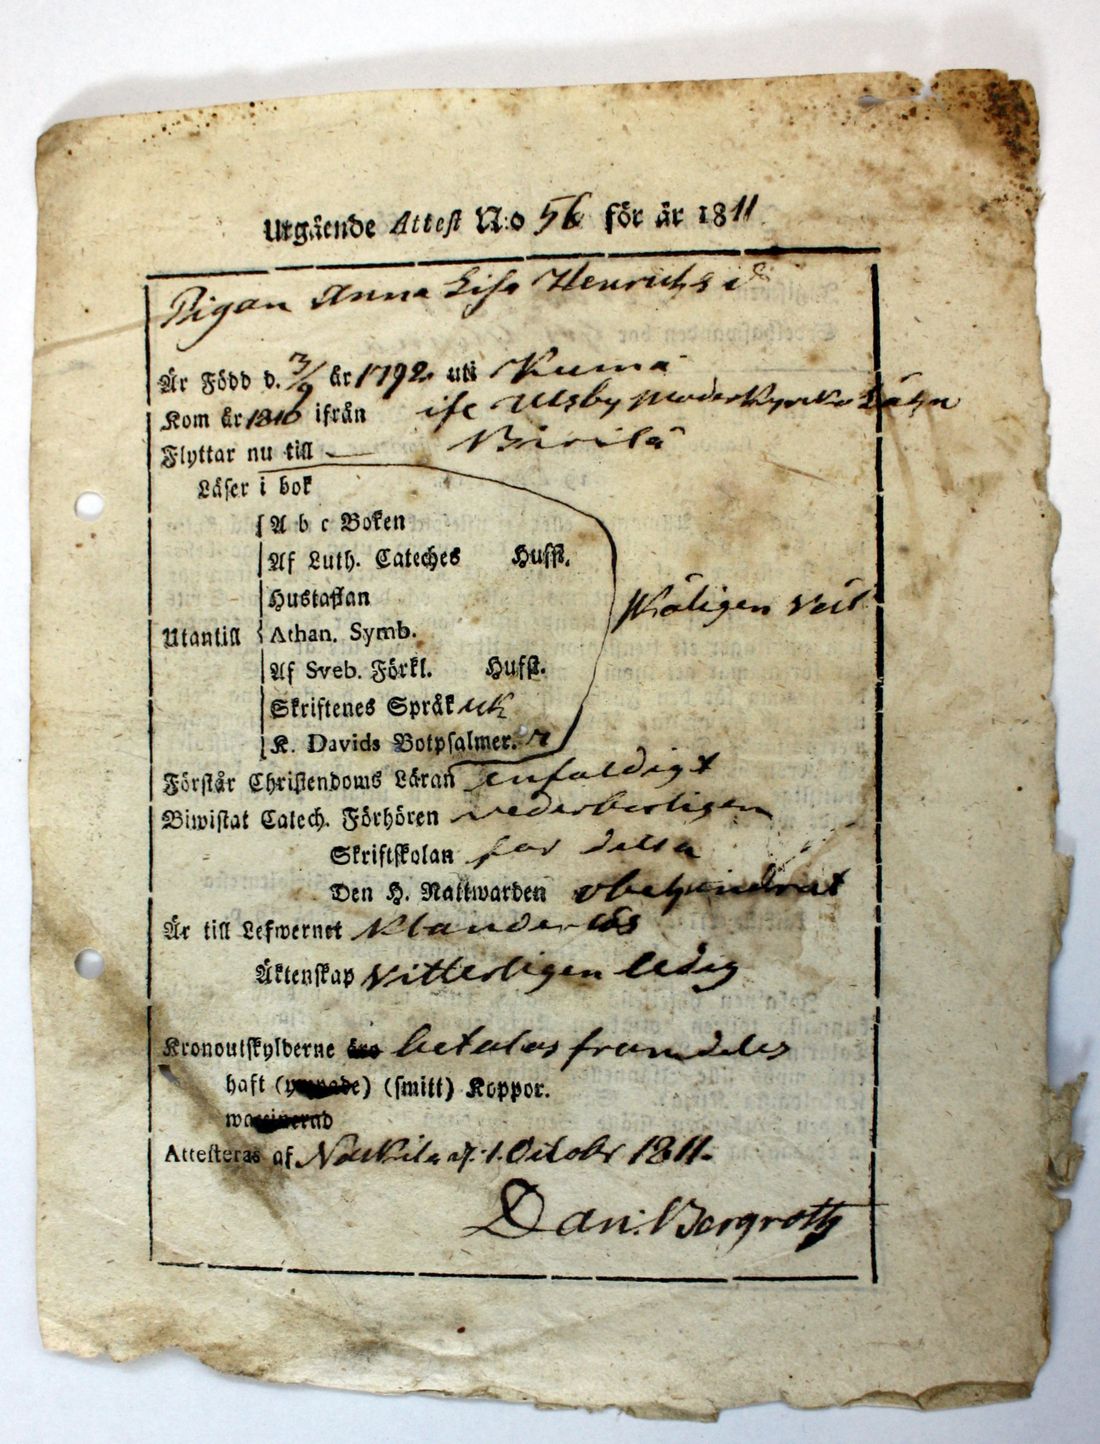 Utgående Attest N:o 56 för år 1811
Pigan Anna Lisa Henrichsd
Är Född d. 3/9 år 1792 uti Kumå
Kom år 1810 ifrån Ulsby moderkyrko
Flyttar nu till Birilä
Läser i bok
A b c Boken
Af Luth. Cateches Husst.
Hustaflan
Utantill Athan. Symb.
Af Sveb. Förkl. Husst.
Skriftenes Språk
K. Davids Botpsalmer.
Förstår Christendoms Läran enfaldigt
Biwistat Catech. Förhören vederbörligen
Skriftskolan
Den H. Nattwarden obehindrat
Är till Lefwernet Klanderlös
Äktenskap Vitterligen ledig
Kronoutskylderne äro betalas framdeles
haft (ympade) (smitt) Koppor.
waccinerad
Attesteras af d. 1. October 1811.
Dan: Bergroth